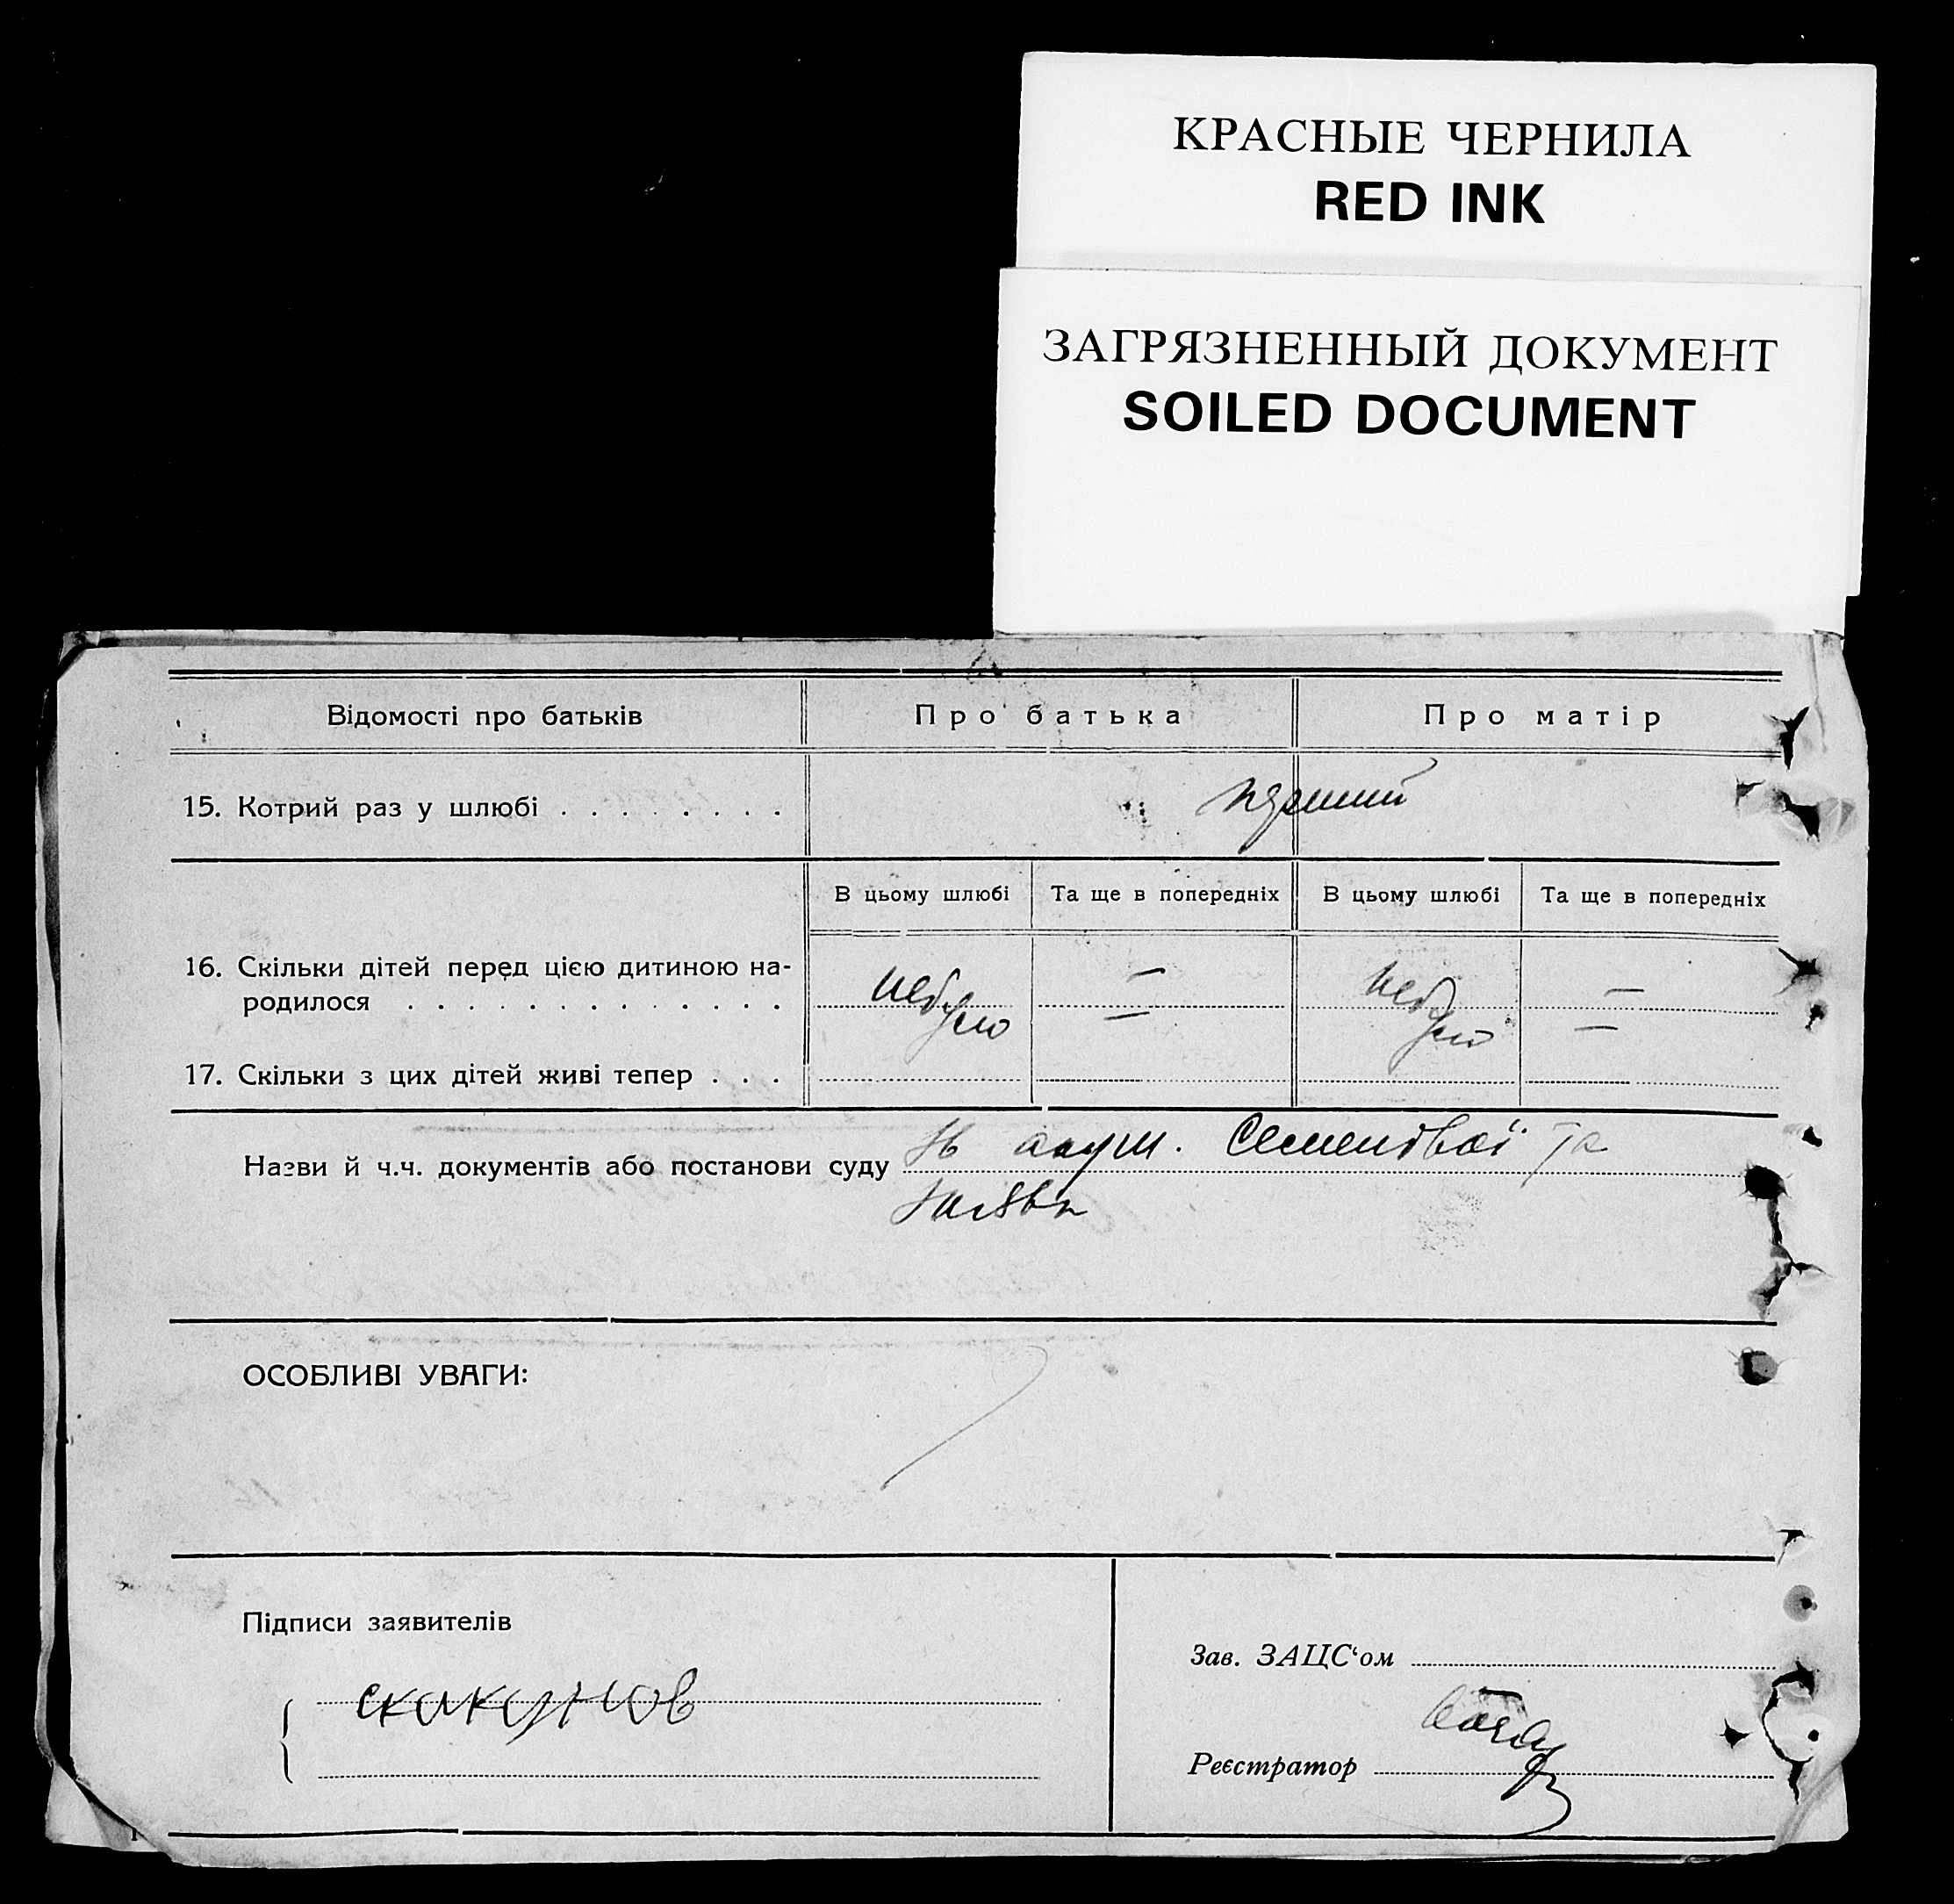 КРАСНЫЕ ЧЕРНИЛА
RED INK
ЗАГРЯЗНЕННЫЙ ДОКУМЕНТ
SOILED DOCUMENT
Відомості про батьків Про батька Про матір
15. Котрий раз у шлюбі . . . . . . . . перший
В цьому шлюбі Та ще в попередніх В цьому шлюбі Та ще в попередніх
16. Скільки дітей перед цією дитиною на-
родилося . . . . . . . . . . . . . небуло — небуло —
— —
17. Скільки з цих дітей живі тепер . . .
Назви й ч.ч. документів або постанови суду акуш. Семенової та
заява
ОСОБЛИВІ УВАГИ:
Підписи заявителів
Зав. ЗАЦС‘ом
скакунов
Реєстратор